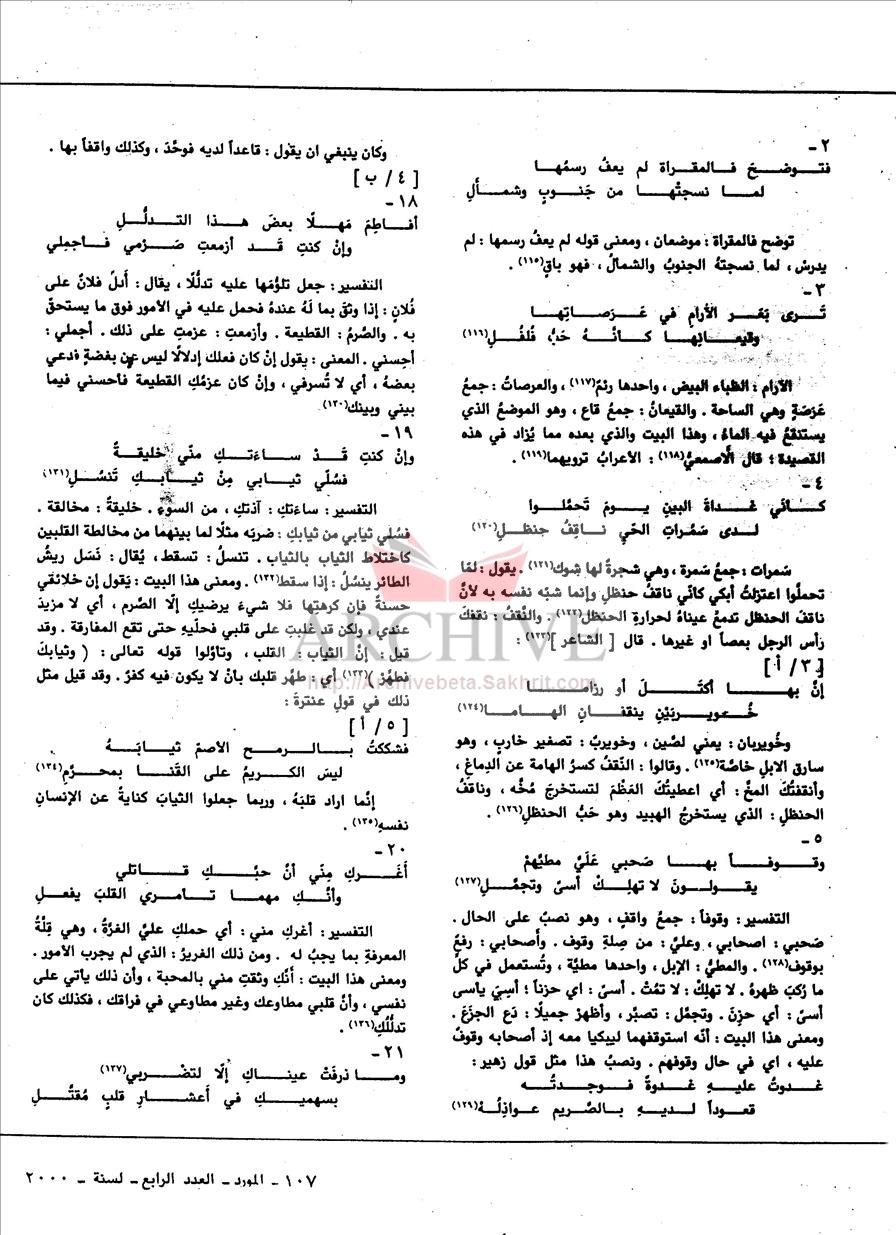 ٢ –
فتـوضحَ فـالمقـراة لم يعفُ رسمُهـا
لمـا نسجتْهـا من جَنـوبٍ وشمـألِ
توضح فالمقراة : موضعان ، ومعنى قوله لم يعفُ رسمها : لم
يدرس ، لما نسجتهُ الجنوبُ والشمالُ ، فهو باقٍ(١١٥) .
٣ –
تَـرى بَعَـر الآرامِ في عَـرَصـاتِهـا
وقيعـانِهـا كـأنـهُ حَبُّ فُلفُـلِ(١١٦)
الآرام : الظباء البيض ، واحدها رئمٌ(١١٧) ، والعرصاتُ : جمعُ
عَرَصَةٍ وهي الساحة . والقيعانُ : جمعُ قاع ، وهو الموضعُ الذي
يستنقعُ فيه الماءُ ، وهذا البيت والذي بعده مما يُزاد في هذه
القصيدة ؛ قال الأصمعيُّ(١١٨) : الأعرابُ ترويهما(١١٩) .
٤ –
كـأني غـداةَ البَينِ يـومَ تَحمّلـوا
لـدى سَمُراتِ الحَيِ نـاقِفُ حنظلِ(١٢٠)
سَمرات : جمعُ سَمرة ، وهي شجرةٌ لها شوك(١٢١) . يقول : لمّا
تحملوا اعتزلتُ أبكي كأني ناقفُ حنظلٍ وإنما شبّه نفسه به لأنَّ
ناقفَ الحنظل تدمعُ عيناهُ لحرارةِ الحنظل(١٢٢) . والنَّقفُ : نقفكَ
رأس الرجل بعصاً او غيرها . قال [ الشاعر ](١٢٣) :
[ ٣ / أ ]
إنّ بهـا أكتَـلَ أو رزامـا
خُـويـربَيْنِ ينقفـانِ الهـامـا(١٢٤)
وخُويربان : يعني لصّين ، وخويربُ : تصغير خاربٍ ، وهو
سارق الابلِ خاصّة(١٢٥) . وقالوا : النّقفُ كسرُ الهامة عن الدِماغِ ،
وأنقفتُكَ المخَّ : أي اعطيتُكَ العَظْمَ لتستخرجَ مُخَّه ، وناقفُ
الحنظلِ : الذي يستخرجُ الهبيد وهو حَبُّ الحنظلِ(١٢٦) .
٥ –
وقـوفـاً بهـا صَحبي عَلَيَّ مطيَّهمْ
يقـولـونَ لا تهلِـكْ أسىً وتجمَّـلِ(١٢٧)
التفسير : وقوفاً : جمعُ واقفٍ ، وهو نصبُ على الحال .
صَحبي : اصحابي ، وعليَّ : من صِلةِ وقوف . وأصحابي : رفعٌ
بوقوف(١٢٨) . والمطيُّ : الإبل ، واحدها مطيّة ، وتُستعمل في كلِّ
ما رُكبَ ظهرهُ . لا تهلِكْ : لا تمُتْ . أسىً : اي حزناً ؛ أسِيَ يأسى
أسىً : أي حزِنَ . وتجمَّل : تصبّر ، وأظهرْ جميلًا : دَع الجزَعَ .
ومعنى هذا البيت : أنّه استوقفهما ليبكيا معه إذ أصحابه وقوفٌ
عليه ، اي في حال وقوفهم . ونصبُ هذا مثل قول زهير :
غـدوتُ عليـهِ غـدوةً فـوجـدتُـه
قعـوداً لـديـهِ بـالصَّريمِ عواذِلُـهُ(١٢٩)
وكان ينبغي ان يقول : قاعداً لديه فوحَّدَ ، وكذلك واقفاً بها .
[ ٤ / ب ]
١٨ –
أفـاطِمَ مَهـلًا بعضَ هـذا التـدلُّـلِ
وإنْ كنتِ قَـد أزمعتِ صَـرْمي فـاجمِلي
التفسير : جعل تلوُّمَها عليه تدلُّلًا ، يقال : أدلَّ فلانٌ على
فُلانٍ : إذا وثقَ بما لَهُ عندهُ فحمل عليه في الأمور فوق ما يستحقّ
به . والصُّرمُ : القطيعة . وأزمعتِ : عزمتِ على ذلك . أجملي :
أحسِني . المعنى : يقول إنْ كان فعلك إدلالًا ليس عن بغضةٍ فدعي
بعضهُ ، أي لا تُسرفي ، وإنْ كان عزمُكِ القطيعة فأحسني فيما
بيني وبينك(١٣٠)
١٩ –
وإنْ كنتِ قَـدْ سـاءَتـكِ منّي خليقـةٌ
فسُلّي ثيـابي مِنْ ثيـابـكِ تَنسُـلِ(١٣١)
التفسير : ساءَتكِ : آذتكِ ، من السوءِ . خليقةٌ : مخالقة .
فسُلي ثيابي من ثيابكِ : ضربَه مثلًا لما بينهما من مخالطة القلبين
كاختلاط الثياب بالثيابِ . تنسلُ : تسقط ، يُقال : نَسَل ريشُ
الطائر ينسُلُ : إذا سقط(١٣٢) . ومعنى هذا البيت : يَقول إن خلائقي
حسنةٌ فإن كرهتِها فلا شيءَ يرضيكِ إلّا الصُّرم ، أي لا مزيدَ
عندي ، ولكن قد غلبتِ على قلبي فخلّيهِ حتى تقع المفارقة . وقد
قيل : إنَّ الثياب : القلب ، وتأوّلوا قوله تعالى : ( وثيابكَ
فطهِّرْ )(١٣٣) أي : طهِّر قلبك بأنْ لا يكون فيه كفرٌ . وقد قيل مثل
ذلك في قولِ عنترةَ :
[ ٥ / أ ]
فشككتُ بـالـرمـحِ الأصمّ ثيـابَـهُ
ليسَ الكـريمُ على القَنـا بمحـرَّمِ(١٣٤)
إنّما اراد قلبَهُ ، وربما جعلوا الثيابَ كنايةً عن الإنسانِ
نفسهِ(١٣٥) .
٢٠ –
أغَـركِ مِنّي أنّ حبّـكِ قـاتلي
وأنّـكِ مهمـا تـأمري القلبَ يفعـلِ
التفسير : أغركِ مني : أي حملكِ عليَّ الغرَّةُ ، وهي قِلّةُ
المعرفةِ بما يجبُ له . ومن ذلك الغريرُ : الذي لم يجرب الأمور .
ومعنى هذا البيت : أنّكِ وثقتِ مني بالمحبة ، وأن ذلك يأتي على
نفسي ، وأنّ قلبي مطاوعك وغير مطاوعي في فراقك ، فكذلك كان
تدلُّلُكِ(١٣٦) .
٢١ –
ومـا ذرفَتْ عينـاكِ إلّا لتضْـربي(١٣٧)
بسهميـكِ في أعشـارِ قلبٍ مُقتَّـلِ
ARCHIVE
http://Archivebeta.Sakhrit.com
١٠٧ – المورد – العدد الرابع – لسنة – ٢٠٠٠